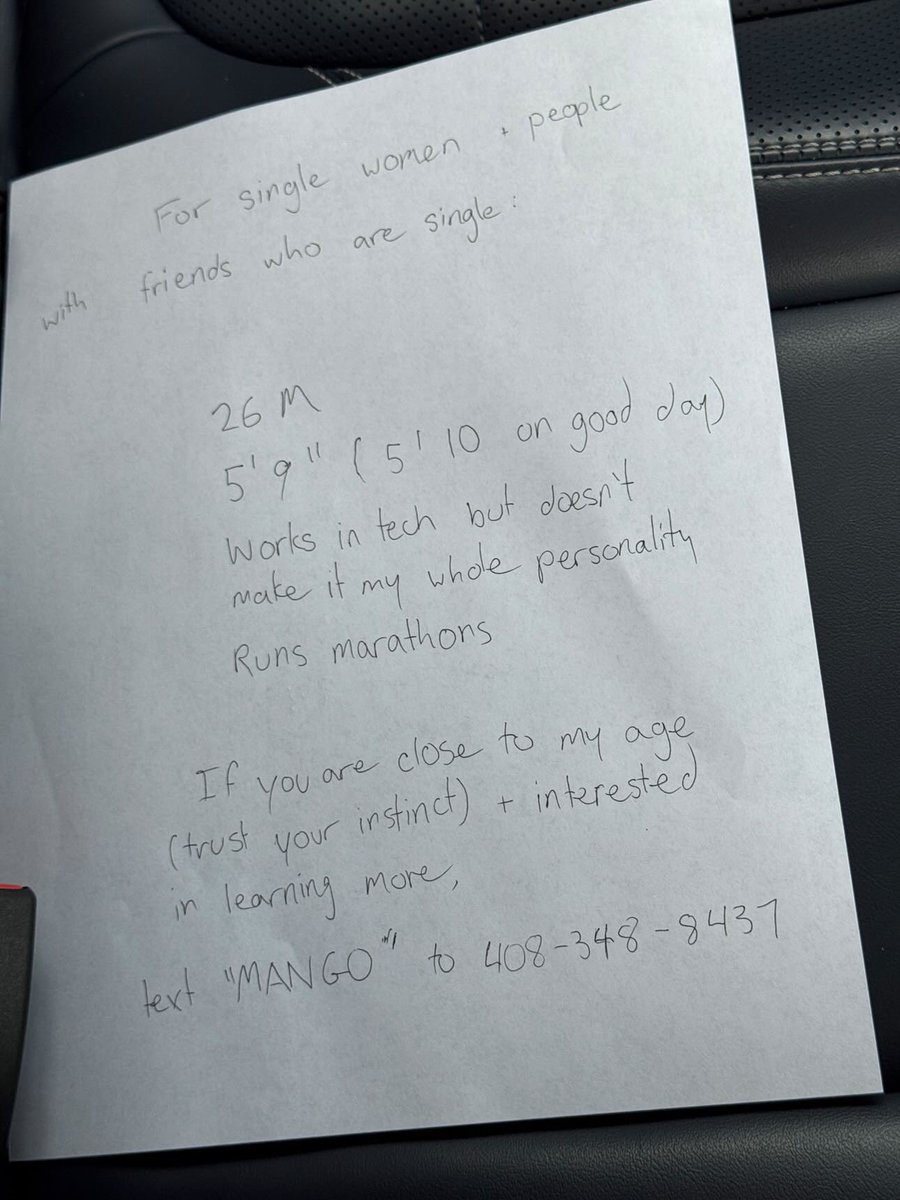 For single women + people
with friends who are single:
26 M
5'9" (5'10 on good day)
Works in tech but doesn't
make it my whole personality
Runs marathons
If you are close to my age
(trust your instinct) + interested
in learning more,
text "MANGO" to 408-348-8437